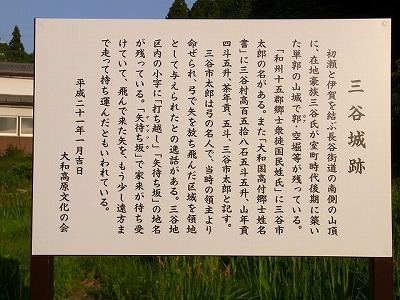 三谷城跡
初瀬と伊賀を結ぶ長谷街道の南側の山頂
に、在地豪族三谷氏が室町時代後期に築い
た単郭の山城で郭・空堀等が残っている。
「和州十五郡郷士衆徒国民姓氏」に三谷市
太郎の名がある。また「大和国高付郷士姓名
書」に三谷村高百五拾八石五斗五升、山年貢
四斗五升、茶年貢、五斗、三谷市太郎と記す。
三谷市太郎は弓の名人で、当時の領主より
命ぜられ、弓で矢を放ち飛んだ区域を領地
として与えられたとの逸話がある。三谷地
区内の小字に「打ち越し」「矢待ち坂」の地名
が残っている。「矢待ち坂」で家来が待ち受
けていて、飛んで来た矢を、もう少し遠方ま
で走って持ち運んだともいわれている。
平成二十一年一月吉日
大和高原文化の会